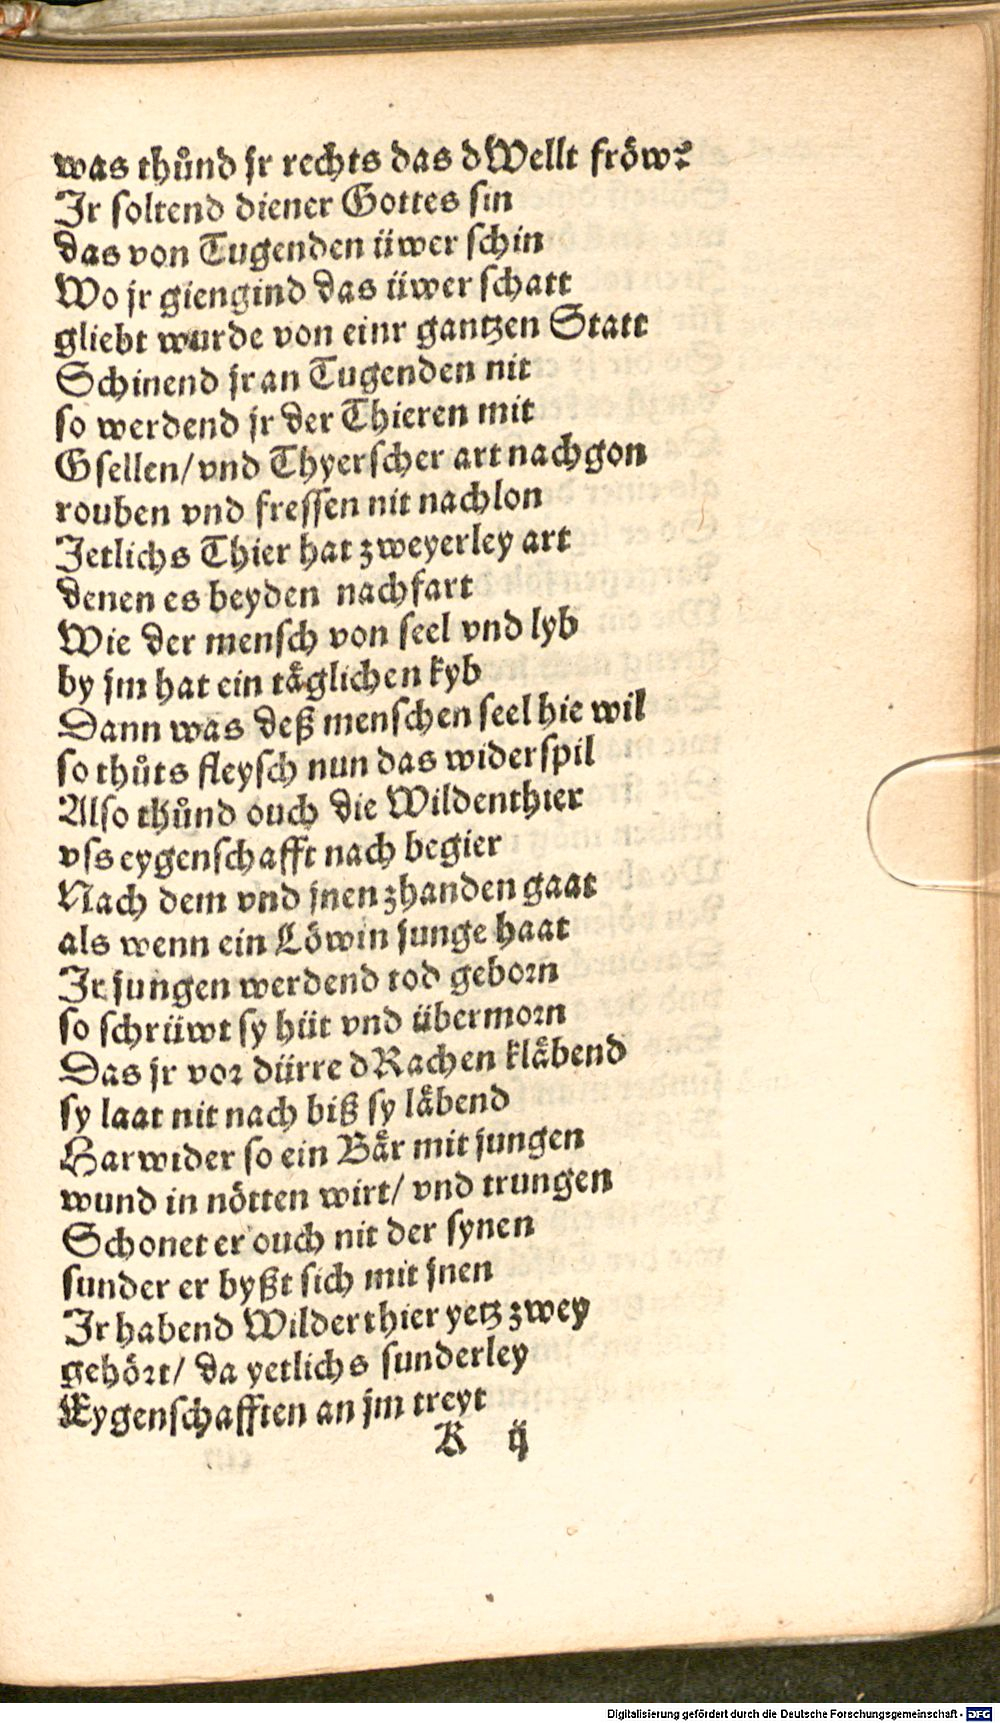 was thůnd jr rechts das dWellt fröw?
Jr soltend diener Gottes sin
das von Tugenden üwer schin
Wo jr giengind das üwer schatt
gliebt wurde von einr gantzen Statt
Schinend jr an Tugenden nit
so werdend jr der Thieren mit
Gsellen/ vnd Thyerscher art nachgon
rouben vnd fressen nit nachlon
Jetlichs Thier hat zweyerley art
denen es beyden nachfart
Wie der mensch von seel vnd lyb
by jm hat ein täglichen kyb
Dann was deß menschen seel hie wil
so thůts fleysch nun das widerspil
Also thůnd ouch die Wildenthier
vss eygenschafft nach begier
Nach dem vnd jnen zhanden gaat
als wenn ein Löwin junge haat
Jr jungen werdend tod geborn
so schrüwt sy hüt vnd übermorn
Das jr vor dürre dRachen kläbend
sy laat nit nach biß sy läbend
Harwider so ein Bär mit jungen
wund in nötten wirt/ vnd trungen
Schonet er ouch nit der synen
sunder er byßt sich mit jnen
Jr habend Wilderthier yetz zwey
gehört/ da yetlichs sunderley
Eygenschafften an jm treyt
K ij
Digitalisierung gefördert durch die Deutsche Forschungsgemeinschaft - DFG